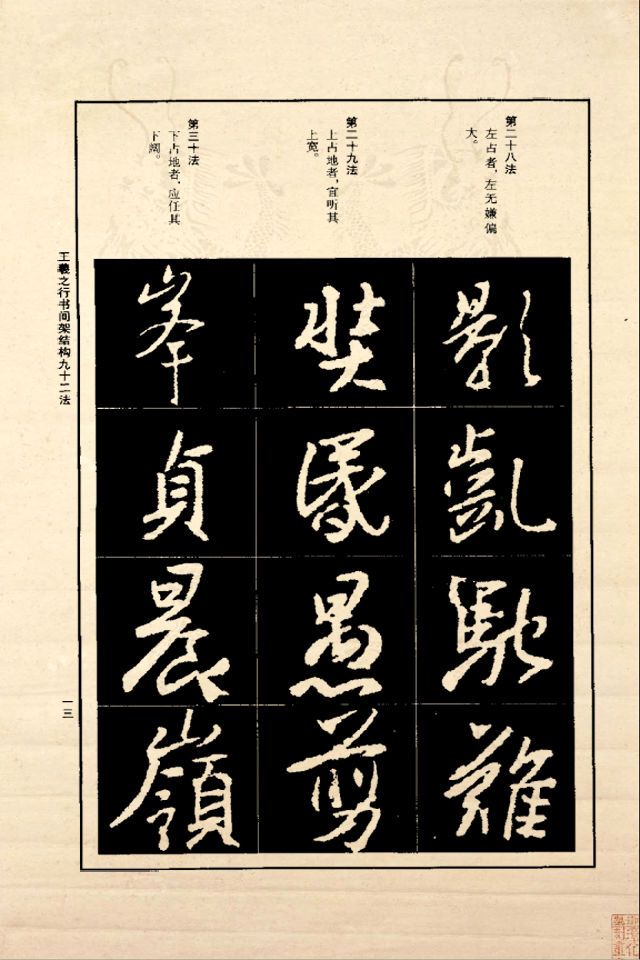 第二十八法
左占者，左无嫌偏
大。
第二十九法
上占地者，宜听其
上宽。
第三十法
下占地者，应任其
下阔。
影
凯
驰
難
奘
愚
剪
峯
貞
晨
嶺
王羲之行书间架结构九十二法
一三